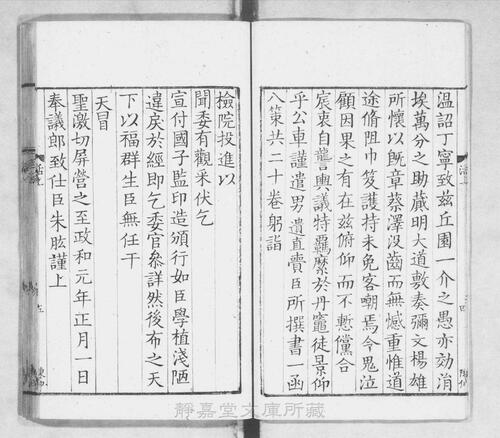 溫詔丁寧致茲丘園一介之愚亦効消
埃萬分之助蕆明大道敷奏彌文楊雄
所懷以旣章蔡澤沒齒而無憾重惟道
途脩阻巾笈護持未免客嘲焉今鬼泣
顧因果之有在茲俯仰而不慙儻合
宸衷自讋輿議特羈縻於丹竈徒景仰
乎公車謹遣男遺直賷臣所撰書一函
八策共二十卷躬詣
檢院投進以
聞委有觀采伏乞
宣付國子監印造頒行如臣學植淺陋
違戾於經即乞委官叅詳然後布之天
下以福群生臣無任干
天冒
聖激切屏營之至政和元年正月一日
奉議郎致仕臣朱肱謹上
靜嘉堂文庫所藏